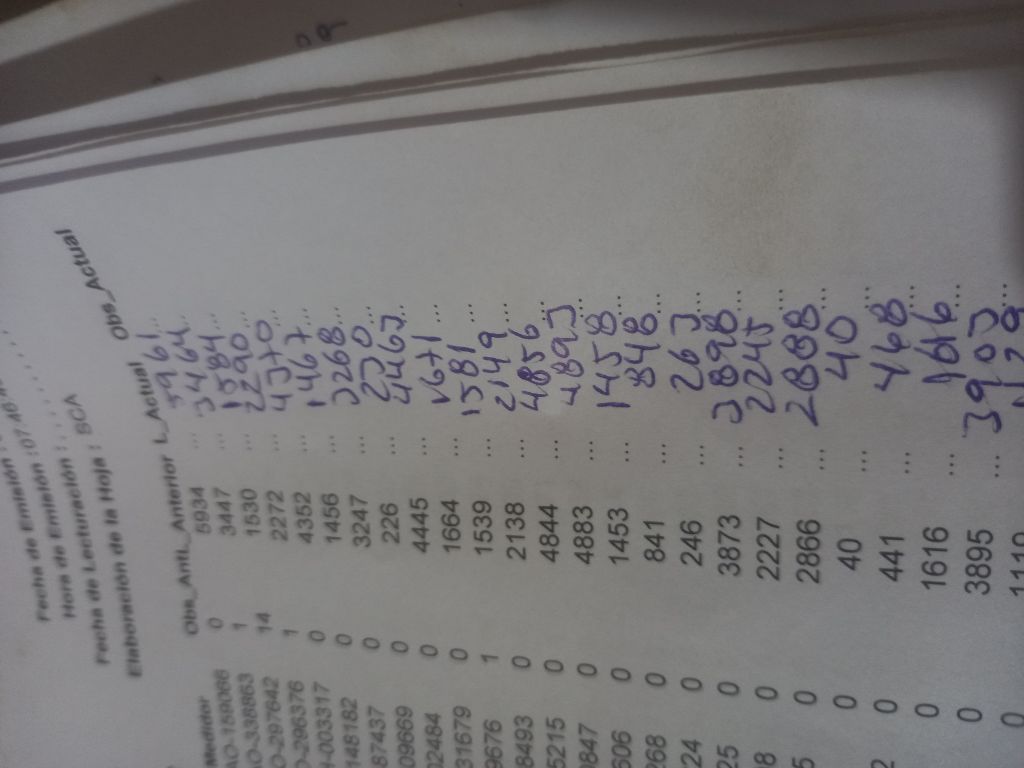 Fecha de Emisión :
Hora de Emisión : 07:46:4
Fecha de Lecturación : . . . . . . . .
Elaboración de la Hoja : BCA
Medidor Obs_Ant L_Anterior L_Actual Obs_Actual
AO-159066 0 5934 ... 5961 ...
AO-338863 1 3447 ... 3464 ...
O-297642 14 1530 ... 1584 ...
O-296376 1 2272 ... 2290 ...
-0033317 0 4352 ... 4370 ...
148182 0 1456 ... 1467 ...
87437 0 3247 ... 3268 ...
09669 0 226 ... 230 ...
02484 0 4445 ... 4463 ...
31679 0 1664 ... 1671 ...
9676 1 1539 ... 1581 ...
8493 0 2138 ... 2149 ...
5215 0 4844 ... 4856 ...
0847 0 4883 ... 4893 ...
606 0 1453 ... 1458 ...
268 0 841 ... 848 ...
24 0 246 ... 263 ...
25 0 3873 ... 3898 ...
8 0 2227 ... 2245 ...
5 0 2866 ... 2888 ...
0 40 ... 40 ...
2 0 441 ... 468 ...
0 1616 ... 1616 ...
0 3895 ... 3903 ...
0 1110